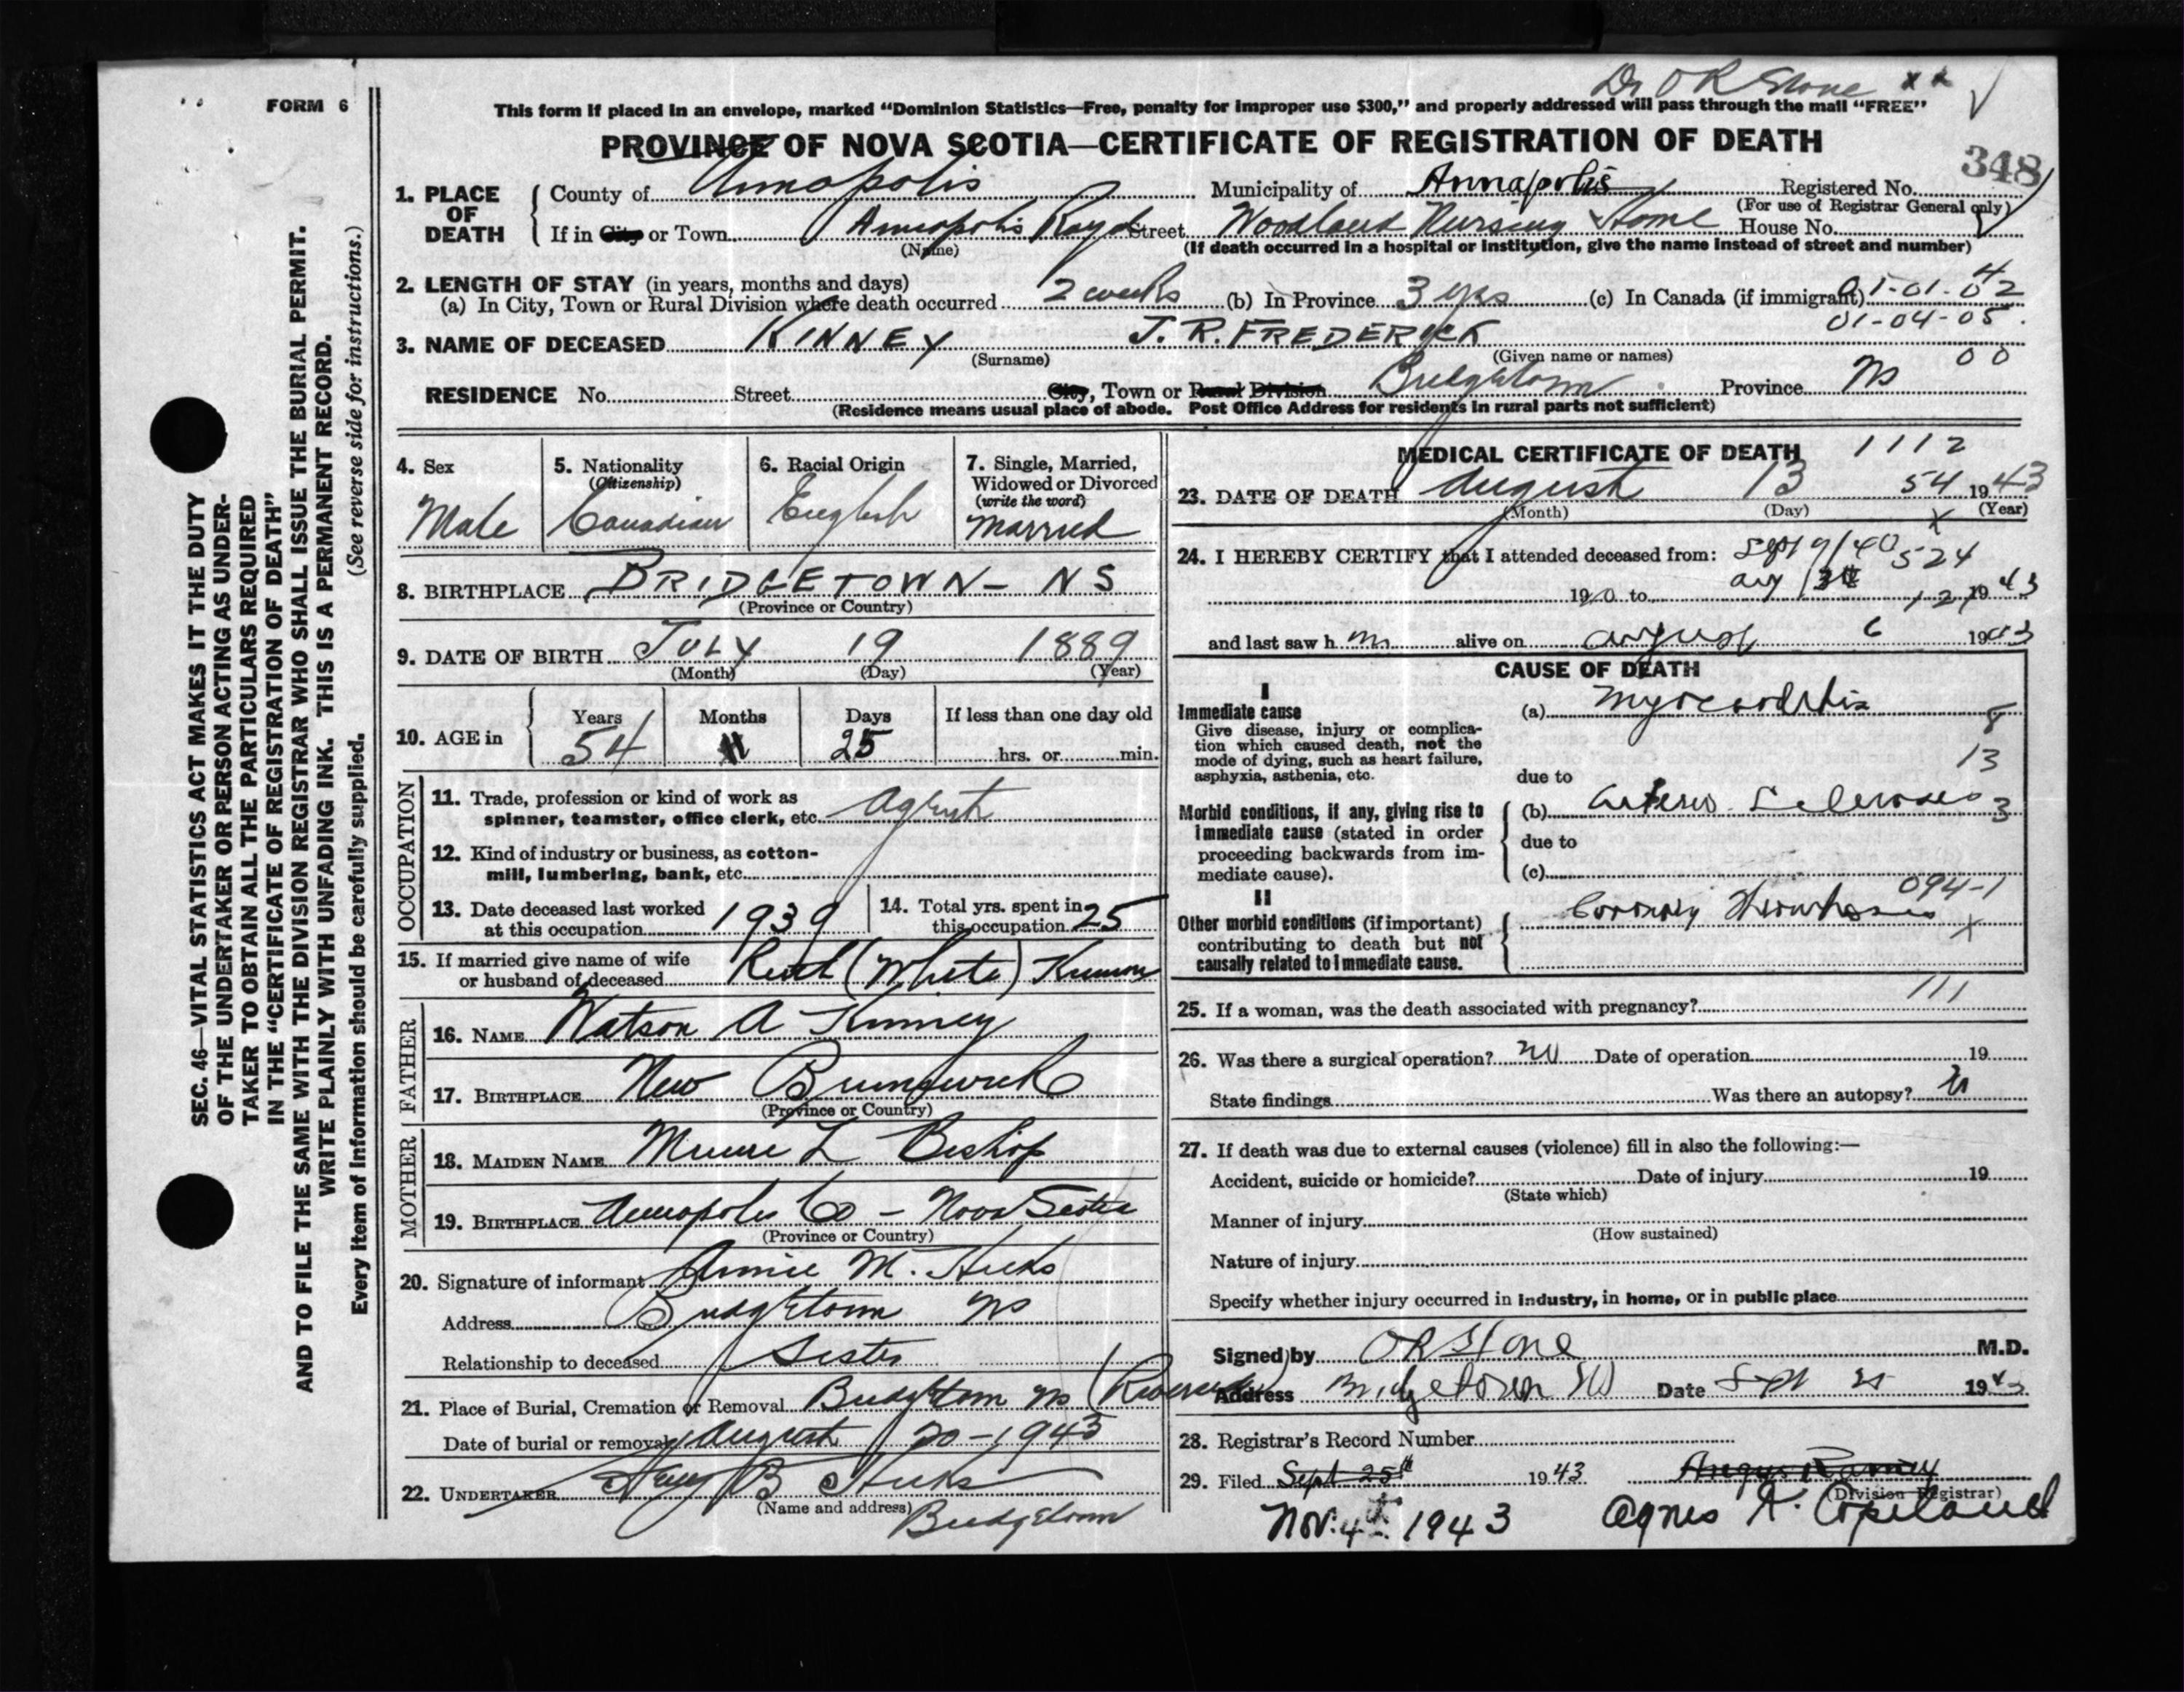 Dr O R Stone x x
FORM 6
This form if placed in an envelope, marked "Dominion Statistics—Free, penalty for improper use $300," and properly addressed will pass through the mail "FREE"
PROVINCE OF NOVA SCOTIA—CERTIFICATE OF REGISTRATION OF DEATH
348
1. PLACE OF DEATH
County of Annapolis Municipality of Annapolis Registered No.
(For use of Registrar General only)
If in City or Town Annapolis Royal Street Woodland Nursing Home House No.
(Name) (If death occurred in a hospital or institution, give the name instead of street and number)
2. LENGTH OF STAY (in years, months and days)
(a) In City, Town or Rural Division where death occurred 2 weeks (b) In Province 3 yrs (c) In Canada (if immigrant) 01-01-02
4
01-04-05
3. NAME OF DECEASED KINNEY J. R. FREDERICK
(Surname) (Given name or names)
00
RESIDENCE No. Street City, Town or Rural Division Bridgetown Province NS
(Residence means usual place of abode. Post Office Address for residents in rural parts not sufficient)
4. Sex
Male
5. Nationality
(Citizenship)
Canadian
6. Racial Origin
English
7. Single, Married,
Widowed or Divorced
(write the word)
Married
8. BIRTHPLACE BRIDGETOWN - NS
(Province or Country)
9. DATE OF BIRTH JULY 19 1889
(Month) (Day) (Year)
10. AGE in
Years Months Days If less than one day old
54 25 hrs. or min.
OCCUPATION
11. Trade, profession or kind of work as
spinner, teamster, office clerk, etc. Agent
12. Kind of industry or business, as cotton-
mill, lumbering, bank, etc.
13. Date deceased last worked
at this occupation 1939
14. Total yrs. spent in
this occupation 25
15. If married give name of wife
or husband of deceased Ruth (White) Kinney
FATHER
16. NAME Watson A Kinney
17. BIRTHPLACE New Brunswick
(Province or Country)
MOTHER
18. MAIDEN NAME Minnie L Bishop
19. BIRTHPLACE Annapolis Co - Nova Scotia
(Province or Country)
20. Signature of informant Annie M. Hicks
Address Bridgetown NS
Relationship to deceased Sister
21. Place of Burial, Cremation or Removal Bridgetown NS (Riverside)
Date of burial or removal August 20-1943
22. UNDERTAKER B Hicks
(Name and address) Bridgetown
MEDICAL CERTIFICATE OF DEATH 1112
23. DATE OF DEATH August 13 54 1943
(Month) (Day) (Year)
x
24. I HEREBY CERTIFY that I attended deceased from: Sept 9/40 524
1940 to Aug 13 121 1943
and last saw h m alive on August 6 1943
CAUSE OF DEATH
I
Immediate cause
Give disease, injury or complica-
tion which caused death, not the
mode of dying, such as heart failure,
asphyxia, asthenia, etc.
(a) Myocarditis 8
13
due to
Morbid conditions, if any, giving rise to
immediate cause (stated in order
proceeding backwards from im-
mediate cause).
(b) Arterio Sclerosis 3
due to
(c)
094-1
II
Other morbid conditions (if important)
contributing to death but not
causally related to immediate cause.
Coronary Thrombosis
x
111
25. If a woman, was the death associated with pregnancy?
26. Was there a surgical operation? no Date of operation 19
State findings Was there an autopsy?
27. If death was due to external causes (violence) fill in also the following:—
Accident, suicide or homicide? Date of injury 19
(State which)
Manner of injury
(How sustained)
Nature of injury
Specify whether injury occurred in industry, in home, or in public place
Signed by O R Stone M.D.
Address Bridgetown NS Date Sept 25 1943
28. Registrar's Record Number
29. Filed Sept 25th 1943
(Division Registrar)
Nov. 4th 1943 Agnes K. Copeland
SEC. 46—VITAL STATISTICS ACT MAKES IT THE DUTY
OF THE UNDERTAKER OR PERSON ACTING AS UNDER-
TAKER TO OBTAIN ALL THE PARTICULARS REQUIRED
IN THE "CERTIFICATE OF REGISTRATION OF DEATH"
AND TO FILE THE SAME WITH THE DIVISION REGISTRAR WHO SHALL ISSUE THE BURIAL PERMIT.
WRITE PLAINLY WITH UNFADING INK. THIS IS A PERMANENT RECORD.
Every item of information should be carefully supplied. (See reverse side for instructions.)